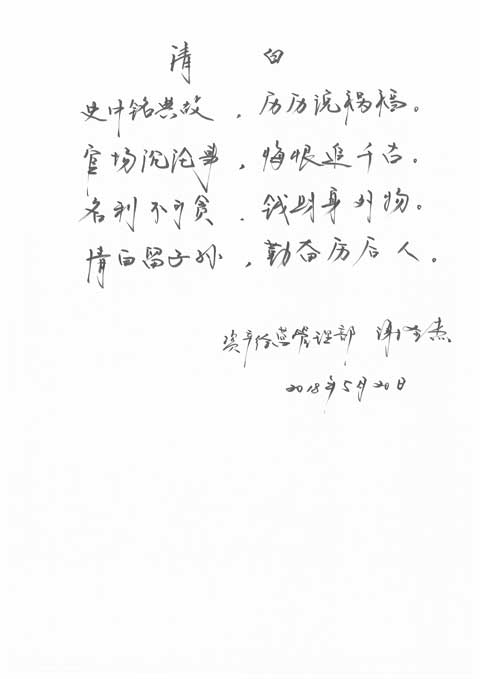 清 白
史中铭典故，历历说祸福。
官场沉沦事，悔恨追千古。
名利不可贪．钱财身外物。
清白留子孙，勤奋厉后人。
资产经营管理部 谢杰
2018年5月20日